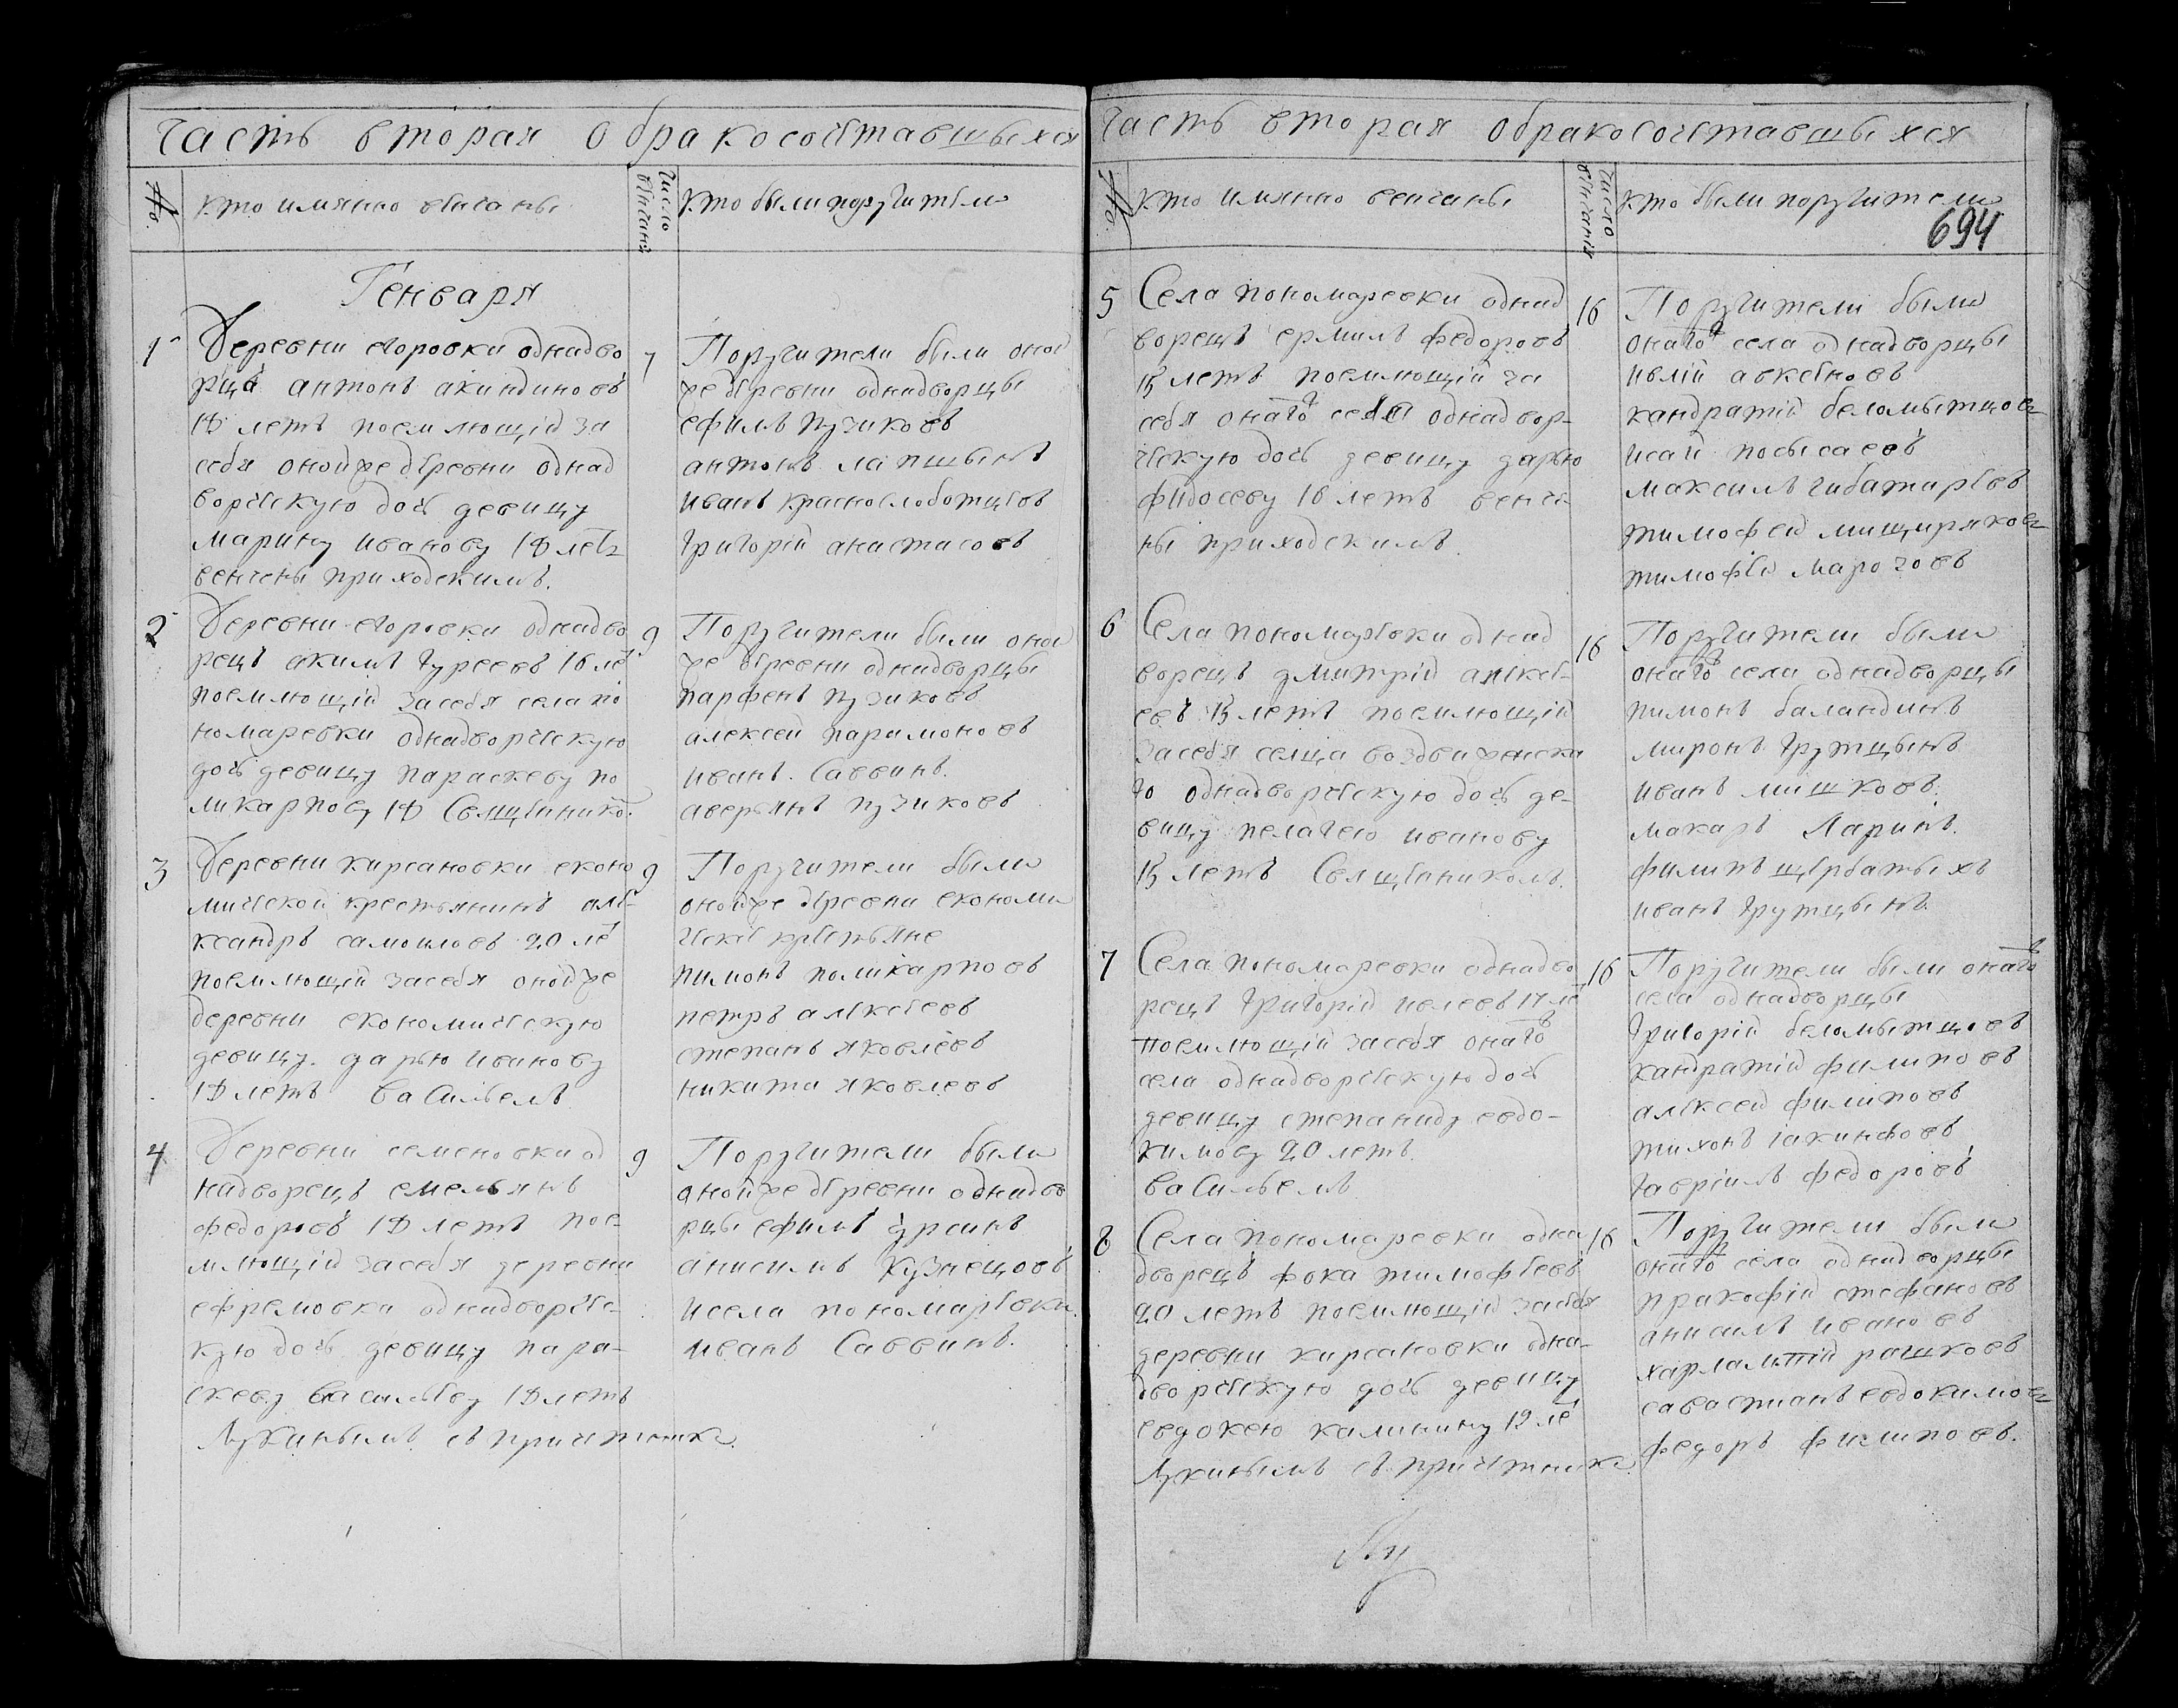 Часть вторая о бракосочетавшыхся
№
кто имянно венчаны
число венчания
кто были поручители
Генваря
1
Деревни егоровки однадво
рца антонъ акиндиновъ
18 летъ поемлющій за
себя оной же деревни однад
ворческую дочь девицу
марину иванову 18 летъ
венчены приходскимъ.
7
Поручители были оной
же деревни однадворцы
ефимъ пузиковъ
антонъ лапшынъ
иванъ краснослоботцовъ
григорій анастасовъ
2
Деревни егоровки однадво
рецъ акимъ гуреевъ 16 ле
поемлющій за себя села по
номаревки однадворческую
дочь девицу параскеву по
ликарпову 18 Священнико.
9
Поручители были оной
же деревни однадворцы
парфенъ пузиковъ
алексей парамоновъ
иванъ. Саввинъ.
аверьянъ пузиковъ
3
Деревни кирсановки еконо
мической крестьянинъ але-
ксандръ самоиловъ 20 ле
поемлющій за себя оной же
деревни економическую
девицу. дарью иванову
18 летъ Васильемъ
9
Поручители были
оной же деревни економи
ческіе крестьяне
пимонъ поликарповъ
петръ алексеевъ
степанъ яковлевъ
никита яковлевъ
4
Деревни семеновки од
надворецъ емельянъ
федоровъ 18 летъ пое-
млющій за себя деревни
ефремовки однадворчес-
кую дочь девицу пара-
скеву васильеву 18 летъ
Лукинымъ съ причетника.
9
Поручители были
оной же деревни однадво
рцы ефимъ гурсинъ
анисимъ Кузнецовъ
и села пономаревки
иванъ Саввинъ.
Часть вторая о бракосочетавшыхся
№
кто имянно венчаны
число венчания
кто были поручители
694
5
Села пономаревки однад
ворецъ ермилъ федоровъ
15 летъ поемлющій за
себя онаго села однадвор-
ческую дочь девицу дарью
федосеву 16 летъ венче-
ны приходскимъ.
16
Поручители были
онаго села однадворцы
иелій авксеновъ
кандратій беломытцовъ
исай посысаевъ
максимъ чибатаревъ
тимофей мищиряковъ
тимофей марозовъ
6
Села пономаревки однад
ворецъ дмитрій алексе-
евъ 15 летъ поемлющій
за себя селца воздвиженска
го однадворческую дочь де-
вицу пелагею иванову
15 летъ Священикомъ.
16
Поручители были
онаго села однадворцы
пимонъ баландинъ
миронъ грутцынъ
иванъ мишковъ.
макаръ Ларинъ.
филипъ щербатыхъ
иванъ грутцынъ.
7
Села пономаревки однадво
рецъ григорій иелеовъ 17 ле
поемлющій за себя онаго
села однадворческую дочь
девицу степаниду евдо-
кимову 20 летъ.
Васильемъ
16
Поручители были онаго
села однадворцы
григорій беломытцовъ
кандратій филиповъ
алексей филиповъ
тихонъ іакинфовъ
гавріилъ федоровъ
8
Села пономаревки одна
дворецъ фока тимофеевъ
20 летъ поемлющій за себя
деревни кирсановки одна-
дворческую дочь девицу
евдокею калинину 19 ле
Лукинымъ съ причетника
16
Поручители были
онаго села однадворцы
пракофій стефановъ
анисимъ ивановъ
харлампій рашковъ
савастианъ евдокимовъ
федоръ филиповъ.